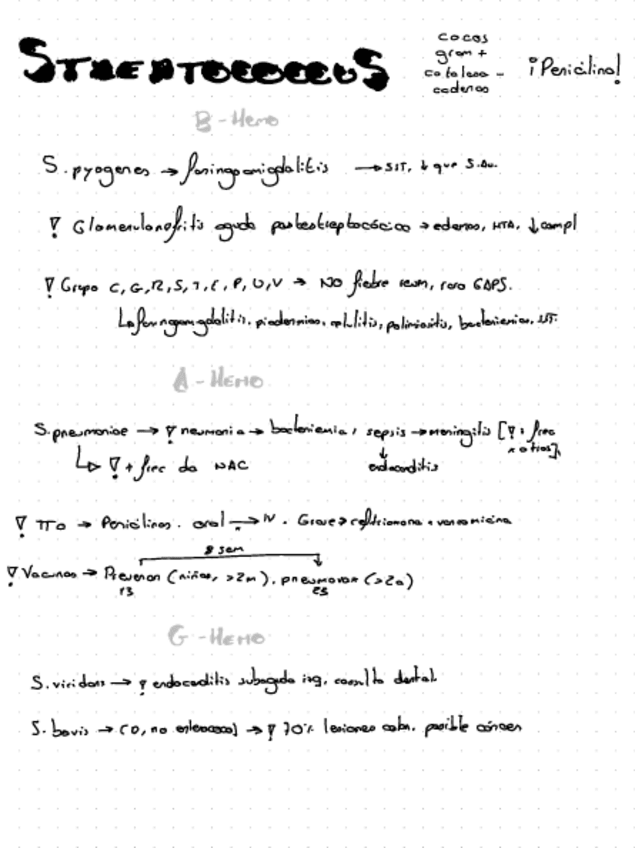 STREPTOCOCCUS
cocos
gram +
catalasa -
cadenas
¡Penicilina!
B - Hemo
S. pyogenes → faringoamigdalitis → SST, ↓ que S. au.
Glomerulonefritis aguda postestreptocócica → edemas, HTA, ↓ compl
Grupo C, G, R, S, T, E, P, U, V → NO fiebre reum, raro GAPS.
↳ faringoamigdalitis, piodermias, celulitis, polimiositis, bacteriemias, SST.
A - Hemo
S. pneumoniae → neumonia → bacteriemia, sepsis → meningitis [ + frec
x otras],
↳ + frec da NAC
↓
endocarditis
TTO → Penicilinas. oral → IV. Grave → ceftriaxona + vancomicina
8 sem
Vacunas → Prevenar (niños, >2m). pneumovax (>2a)
13 23
G - Hemo
S. viridans → endocarditis subaguda izq, consulta dental.
S. bovis → (D, no enterococo) → 70% lesiones colon. posible cáncer